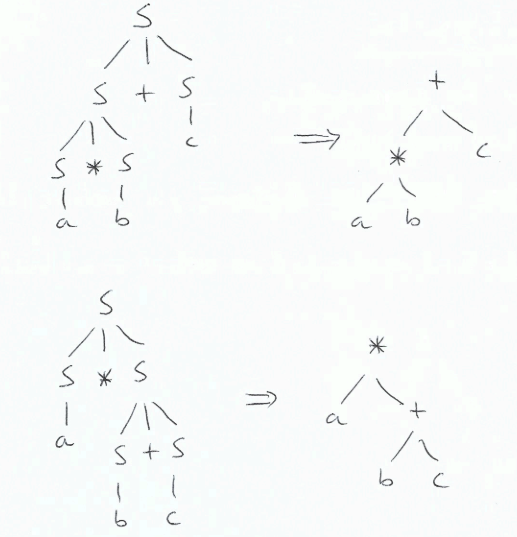 S
S + S
+
c
⇒
S * S
*
c
a
b
a
b
S
*
S * S
⇒
a
a
+
S + S
b
c
b
c